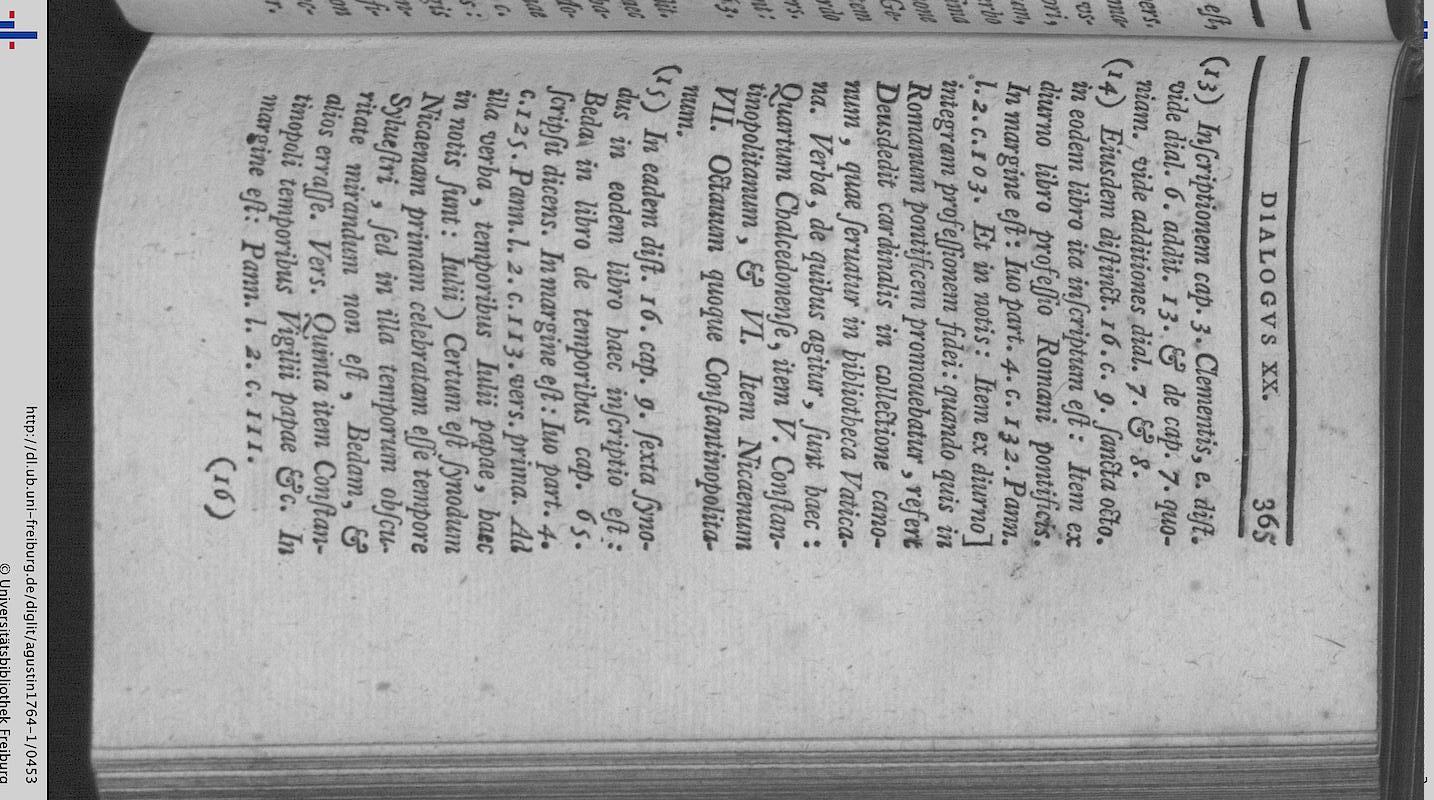 DIALOGVS XX. 365
(13) Inſcriptionem cap. 3. Clementis, e. diſt.
vide dial. 6. addit. 13. & de cap. 7. quo-
niam. vide additiones dial. 7. & 8.
(14) Eiusdem diſtinct. 16. c. 9. ſancta octo.
in eodem libro ita inſcriptum eſt: Item ex
diurno libro profeſſio Romani pontificis.
In margine eſt: Iuo part. 4. c. 132. Pann.
l. 2. c. 103. Et in notis: Item ex diurno]
integram profeſſionem fidei: quando quis in
Romanum pontificem promouebatur, refert
Deusdedit cardinalis in collectione cano-
num, quae ſeruatur in bibliotheca Vatica-
na. Verba, de quibus agitur, ſunt haec:
Quartum Chalcedonenſe, item V. Conſtan-
tinopolitanum, & VI. Item Nicaenum
VII. Octauum quoque Conſtantinopolita-
num.
(15) In eadem diſt. 16. cap. 9. ſexta ſyno-
dus in eodem libro haec inſcriptio eſt:
Beda in libro de temporibus cap. 65.
ſcripſit dicens. In margine eſt: Iuo part. 4.
c. 125. Pann. l. 2. c. 113. vers. prima. Ad
illa verba, temporibus Iulii papae, haec
in notis ſunt: Iulii) Certum eſt ſynodum
Nicaenam primam celebratam eſſe tempore
Sylueſtri, ſed in illa temporum obſcu-
ritate mirandum non eſt, Bedam, &
alios erraſſe. Vers. Quinta item Conſtan-
tinopoli temporibus Vigilii papae &c. In
margine eſt: Pann. l. 2. c. 111.
(16)
http://dl.ub.uni-freiburg.de/diglit/agustin1764-1/0453
© Universitätsbibliothek Freiburg